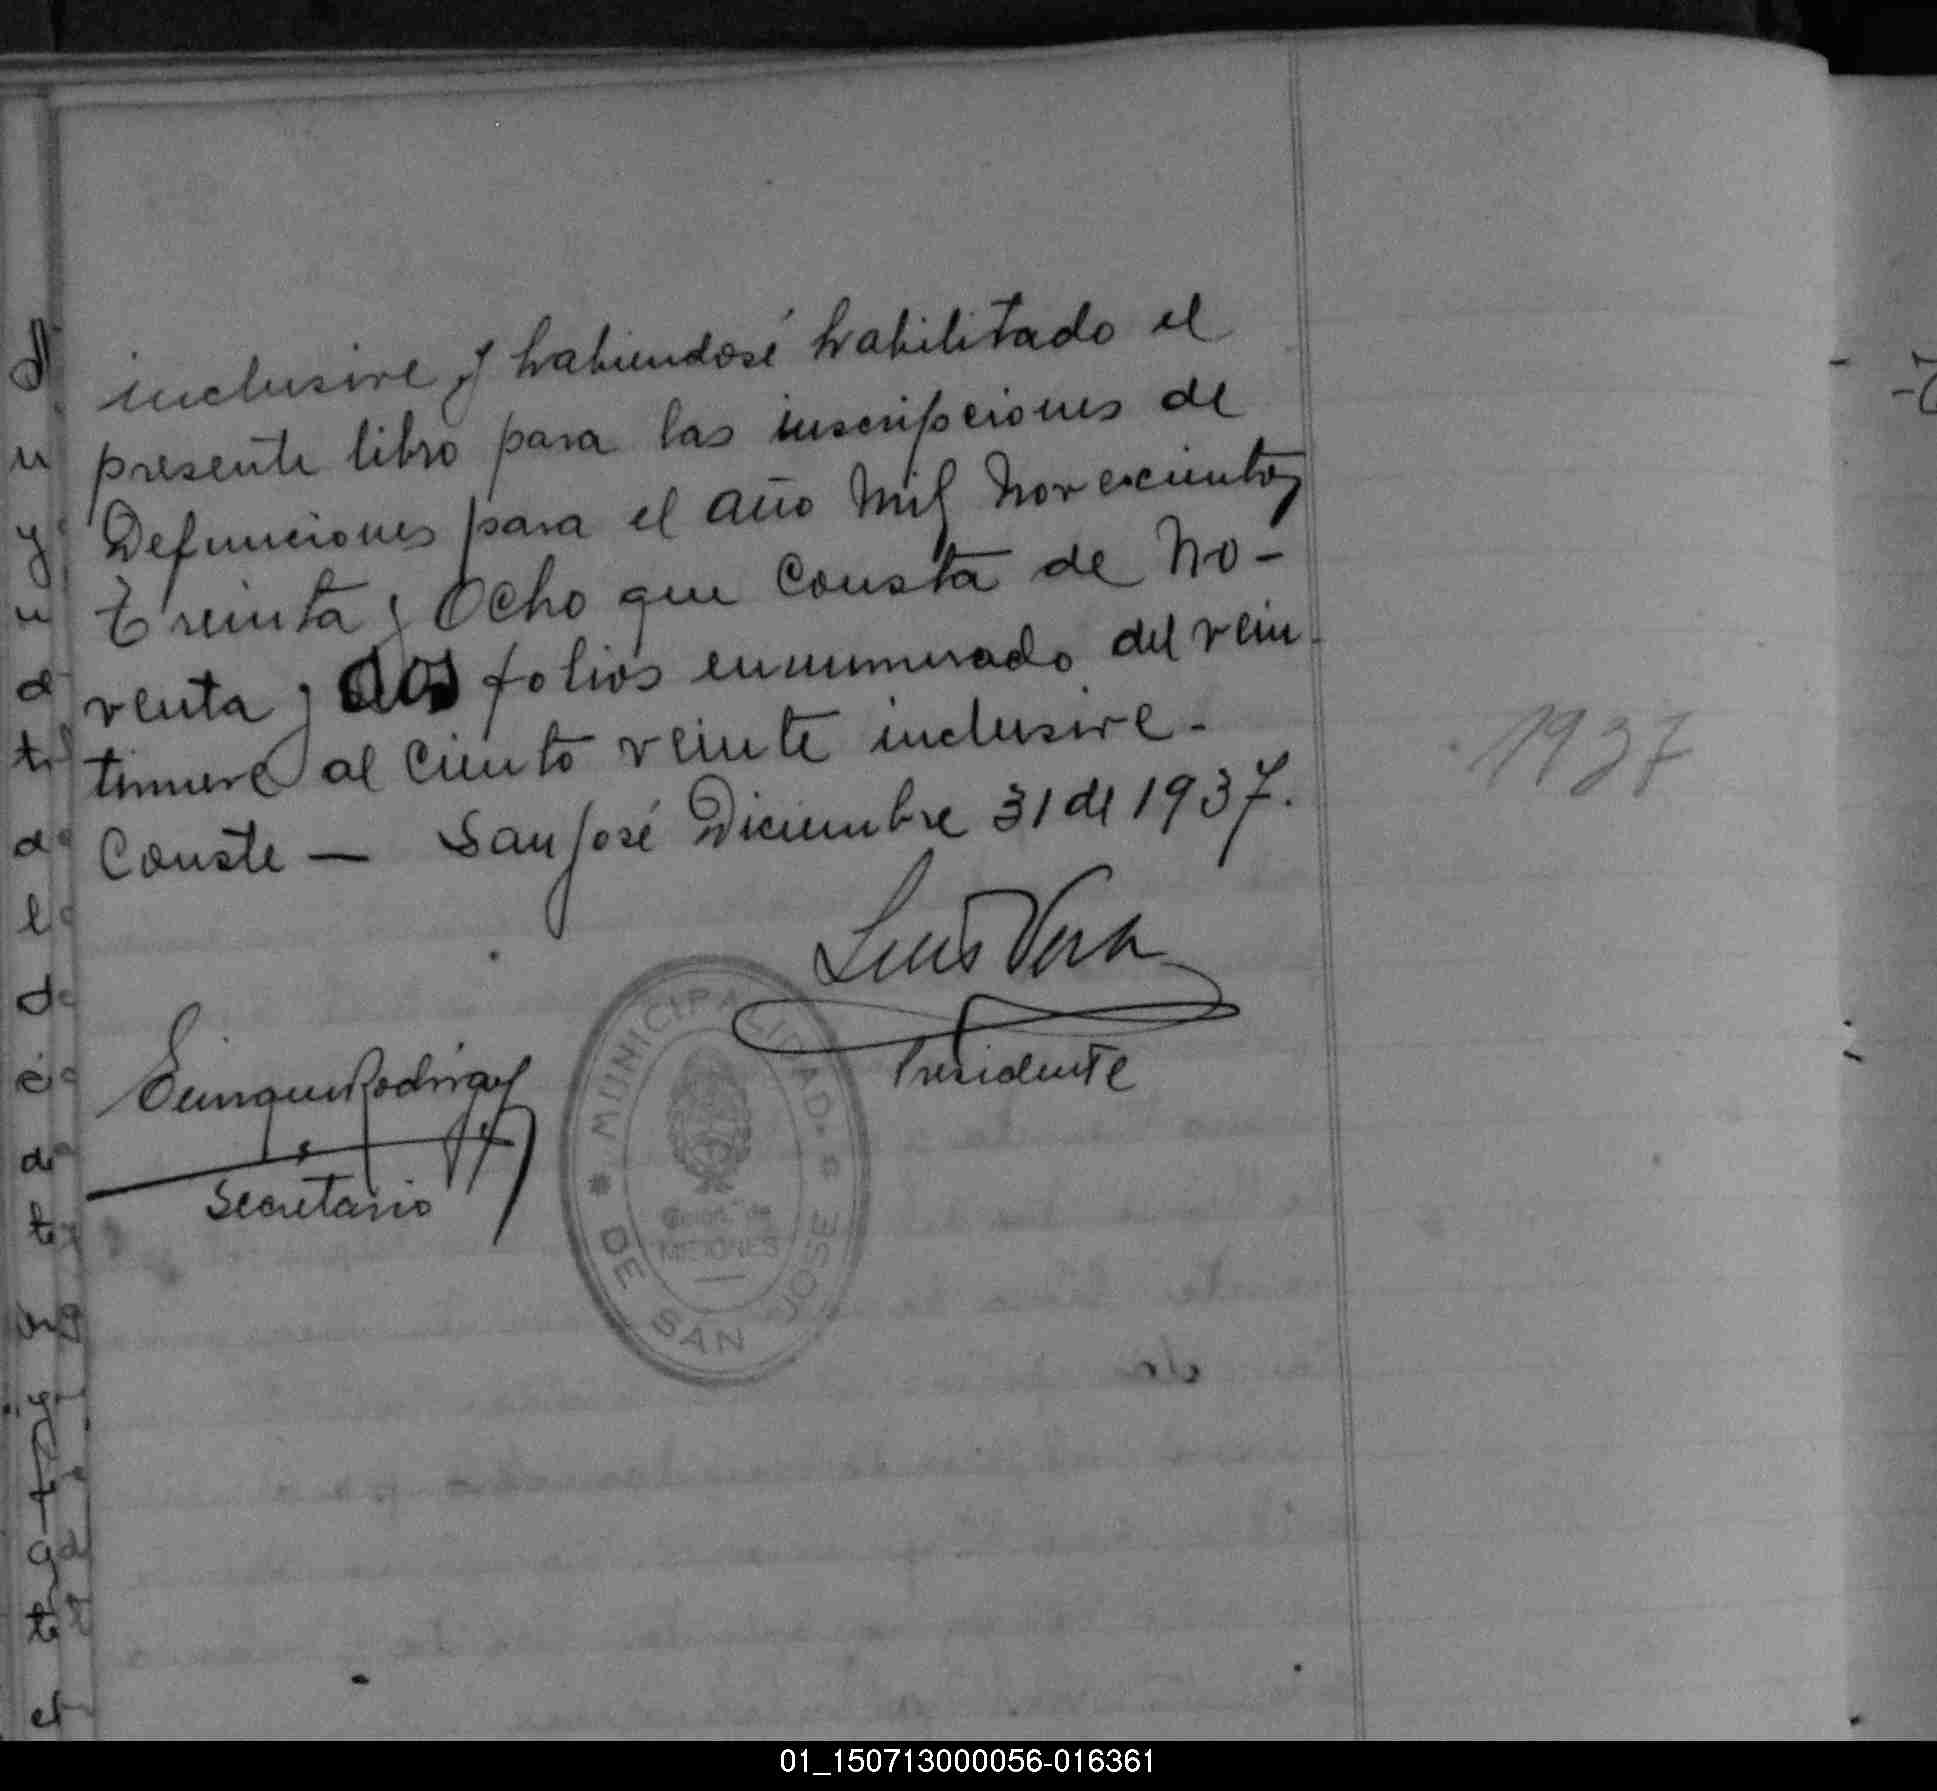 inclusive y habiendosé habilitado el
presente libro para las inscripciones de
Defunciones para el año Mil Novescientos
Treinta y Ocho que Consta de No-
venta y dos folios enumerado del vein
tinueve al Ciento veinte inclusive-
Conste — San José Diciembre 31 de 1937.
1937
Luis Vera
Presidente
Enrique Rodriguez
Secretario
MUNICIPALIDAD DE SAN JOSE
MISIONES
01_150713000056-016361